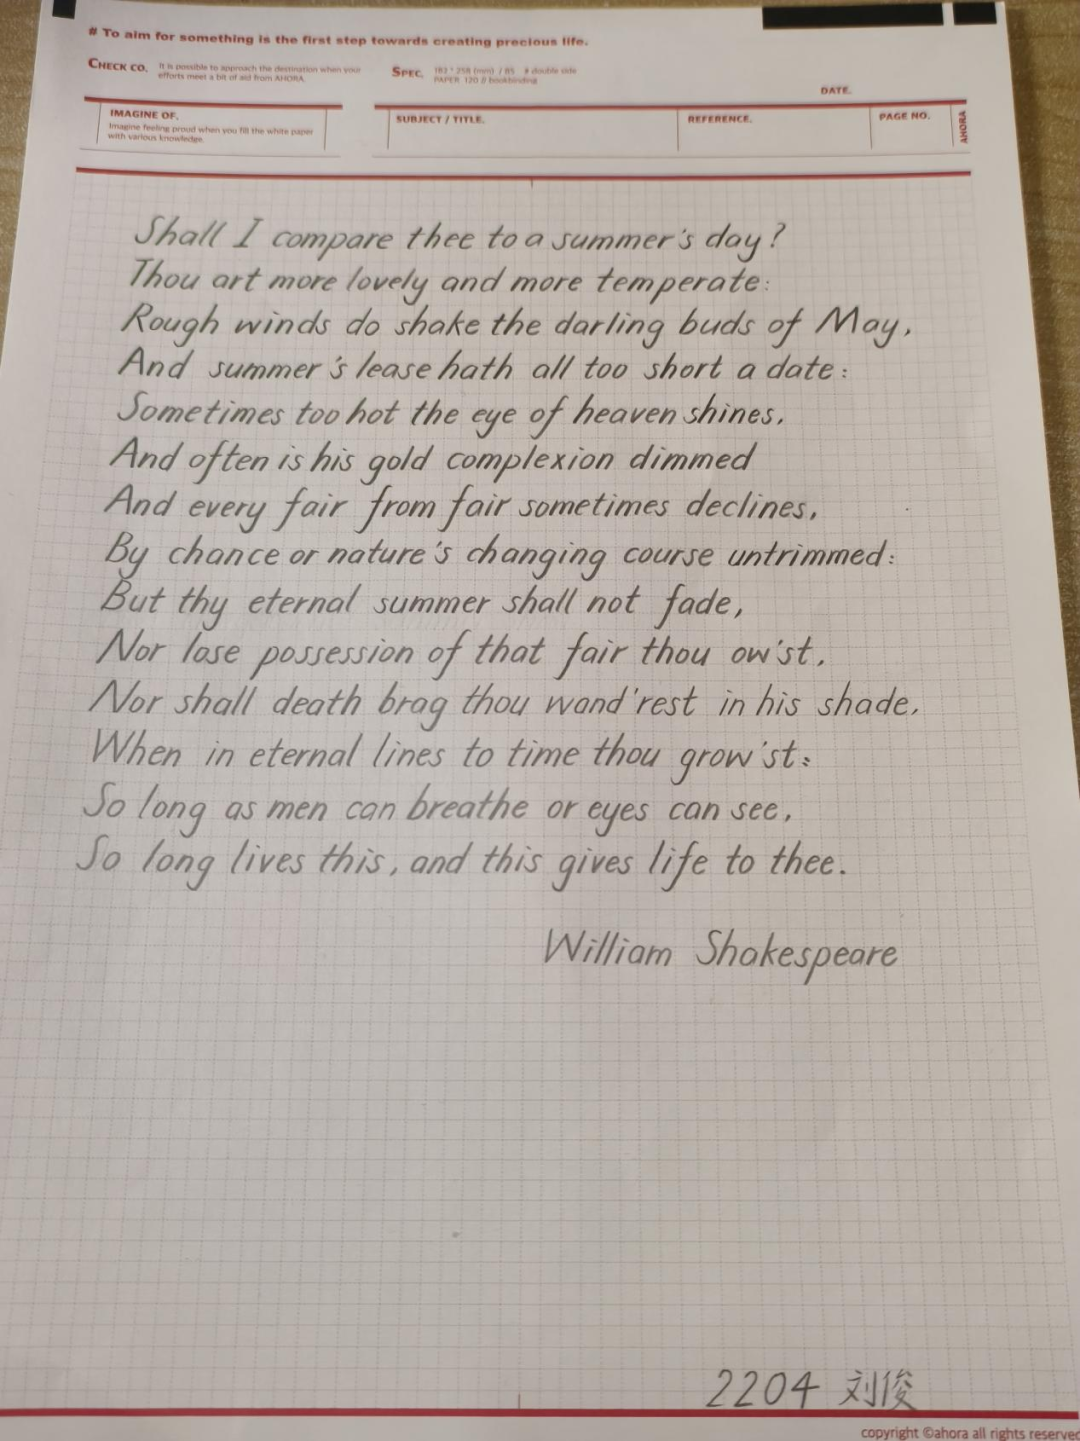 # To aim for something is the first step towards creating precious life.
CHECK CO. It is possible to approach the destination when your
efforts meet a bit of aid from AHORA.
SPEC. 182 * 258 (mm) / 85 # double side
PAPER 120 // bookbinding
DATE.
IMAGINE OF.
Imagine feeling proud when you fill the white paper
with various knowledge.
SUBJECT / TITLE.
REFERENCE.
PAGE NO.
AHORA
Shall I compare thee to a summer's day?
Thou art more lovely and more temperate:
Rough winds do shake the darling buds of May,
And summer's lease hath all too short a date:
Sometimes too hot the eye of heaven shines,
And often is his gold complexion dimmed
And every fair from fair sometimes declines,
By chance or nature's changing course untrimmed:
But thy eternal summer shall not fade,
Nor lose possession of that fair thou ow'st,
Nor shall death brag thou wand'rest in his shade,
When in eternal lines to time thou grow'st:
So long as men can breathe or eyes can see,
So long lives this, and this gives life to thee.
William Shakespeare
2204 刘俊
copyright ©ahora all rights reserved